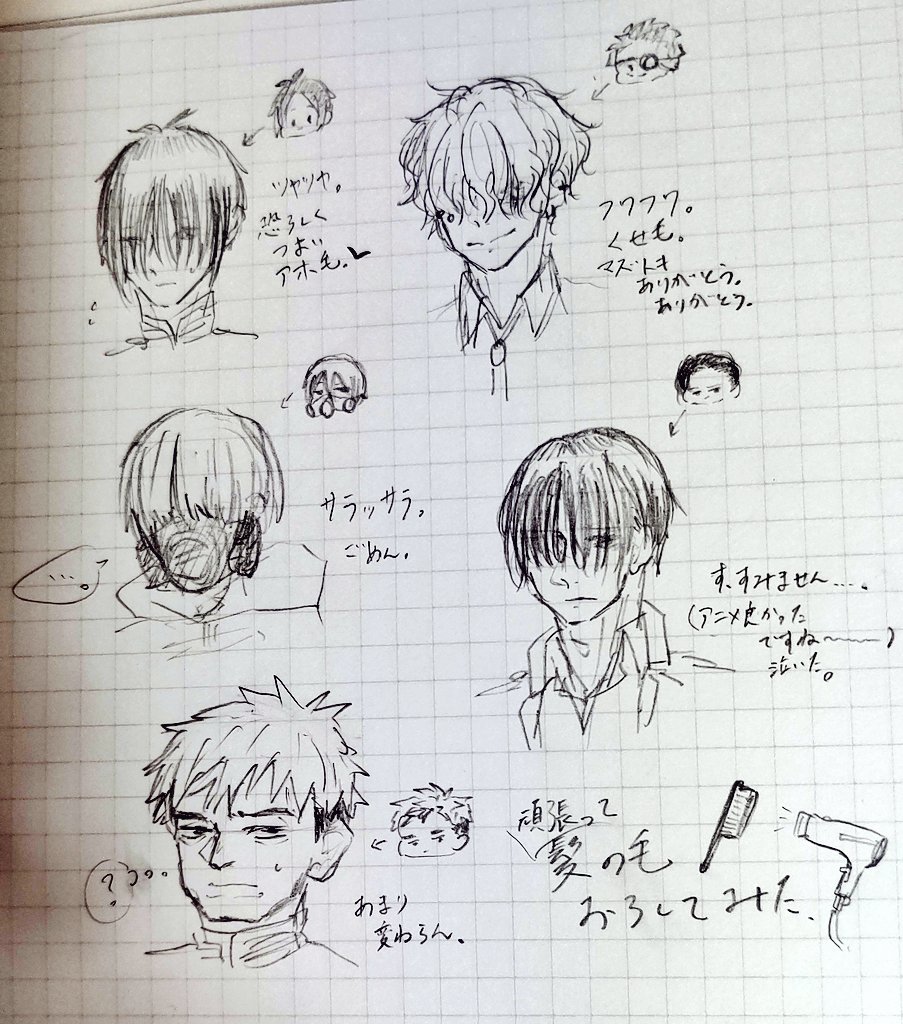 ツヤツヤ。
恐ろしく
つよい
アホ毛。
フワフワ。
くせ毛。
マズトキ
ありがとう。
ありがとう。
サラッサラ。
ごめん。
…。
す、すみません…。
(アニメ良かった
ですね〜〜)
泣いた。
?
あまり
変わらん。
頑張って
髪の毛
おろしてみた。